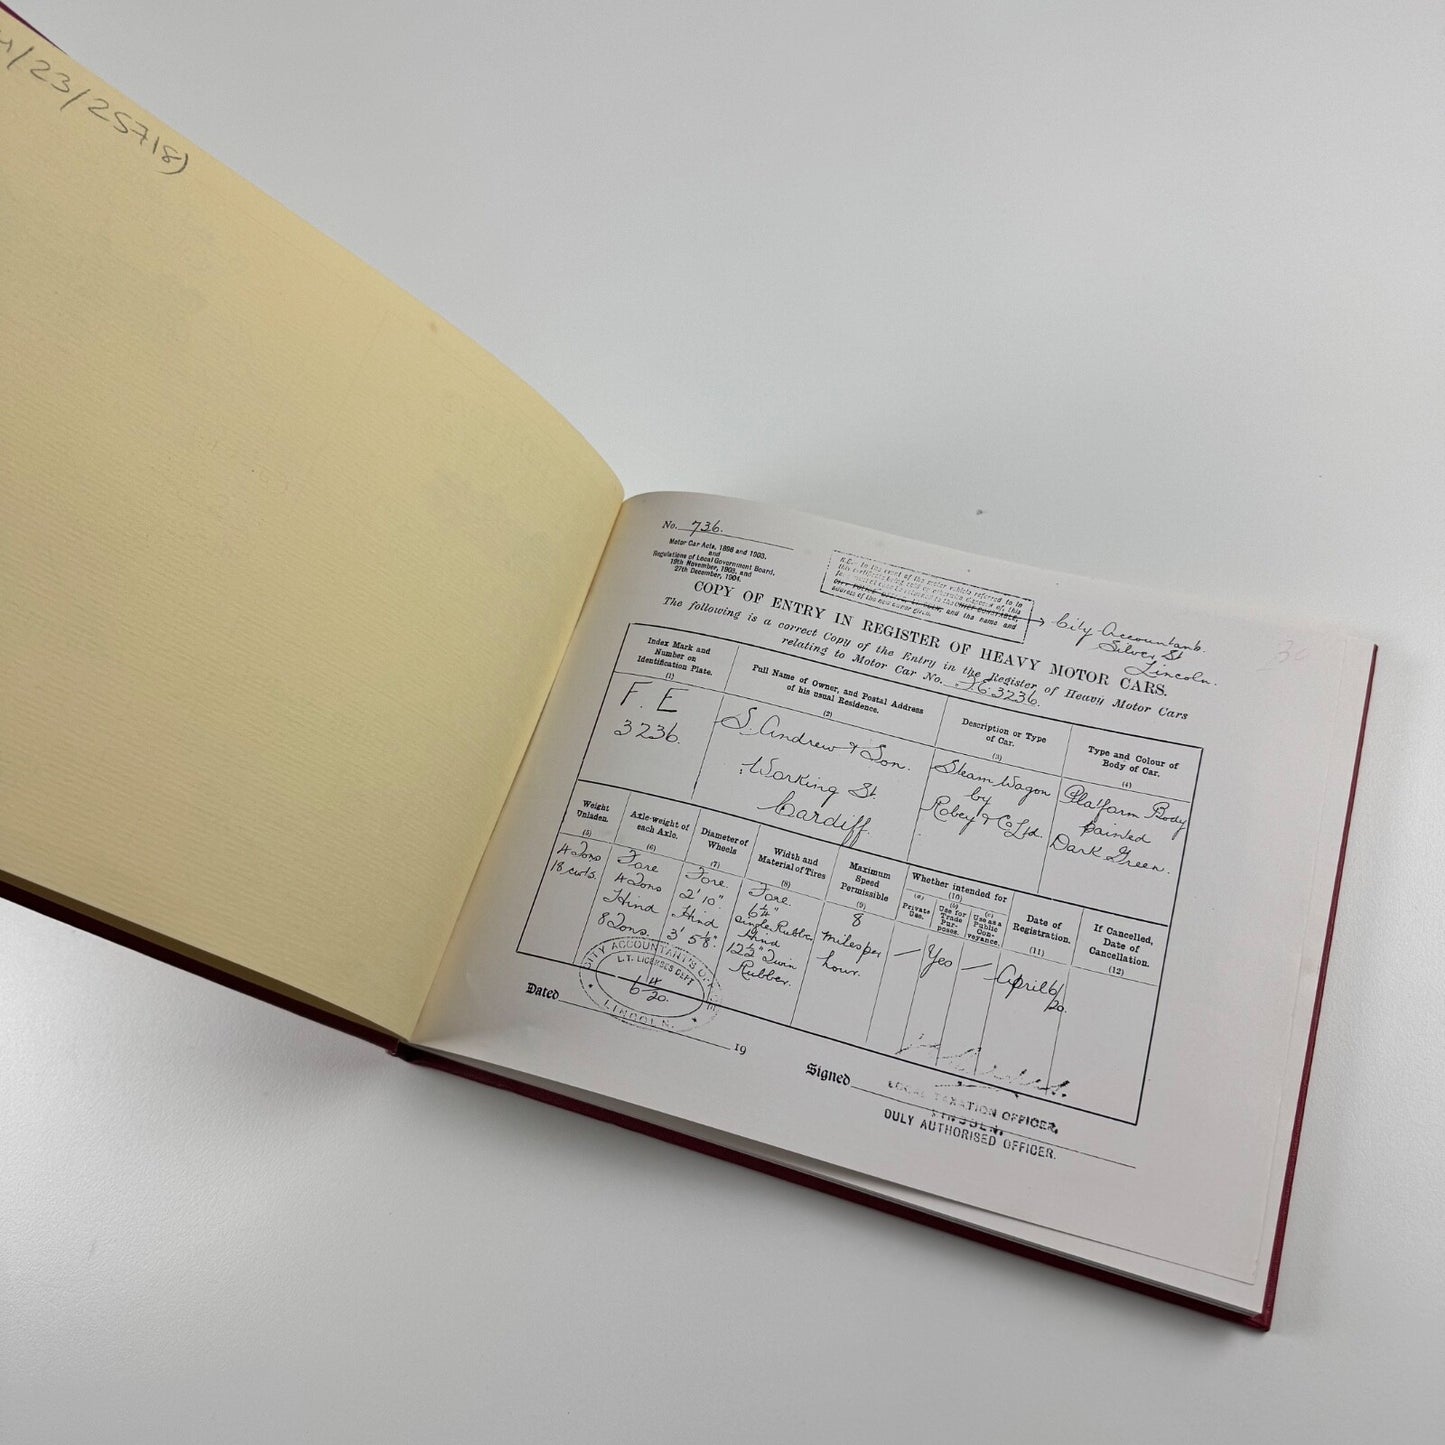 /23/25718)
No. 736.
Motor Car Acts, 1896 and 1903,
and
Regulations of Local Government Board,
19th November, 1903, and
27th December, 1904.
N.B. In the event of the motor vehicle referred to in
this certificate being sold or otherwise disposed of, this
CHIEF CONSTABLE,
CITY POLICE OFFICE, LINCOLN, and the name and
address of the new owner given.
City Accountant.
Silver St
Lincoln.
36
COPY OF ENTRY IN REGISTER OF HEAVY MOTOR CARS.
The following is a correct Copy of the Entry in the Register of Heavy Motor Cars
relating to Motor Car No. 3236.
Index Mark and
Number on
Identification Plate.
(1)
Full Name of Owner, and Postal Address
of his usual Residence.
(2)
Description or Type
of Car.
(3)
Type and Colour of
Body of Car.
(4)
F. E
3236.
S. Andrew & Son.
Working St.
Cardiff.
Steam Wagon
by
Robey & Co Ltd.
Platform Body
painted
Dark Green.
Weight
Unladen.
(5)
Axle-weight of
each Axle.
(6)
Diameter of
Wheels
(7)
Width and
Material of Tires
(8)
Maximum
Speed
Permissible
(9)
Whether intended for
(10)
(a)
Private
Use.
(b)
Use for
Trade
Pur-
poses.
(c)
Use as a
Public
Con-
veyance.
Date of
Registration.
(11)
If Cancelled,
Date of
Cancellation.
(12)
4 Tons
18 cwts.
Fore
4 Tons
Hind
8 Tons.
Fore
2' 10"
Hind
3' 5⅛".
Fore
6¼"
Single Rubber
Hind
12½" Twin
Rubber.
8
miles per
hour.
—
Yes
—
April 6/
20.
CITY ACCOUNTANT'S OFFICE
L.T. LICENSES DEPT
6 4 20.
LINCOLN.
Dated
19
Signed
LOCAL TAXATION OFFICER,
LINCOLN.
DULY AUTHORISED OFFICER.